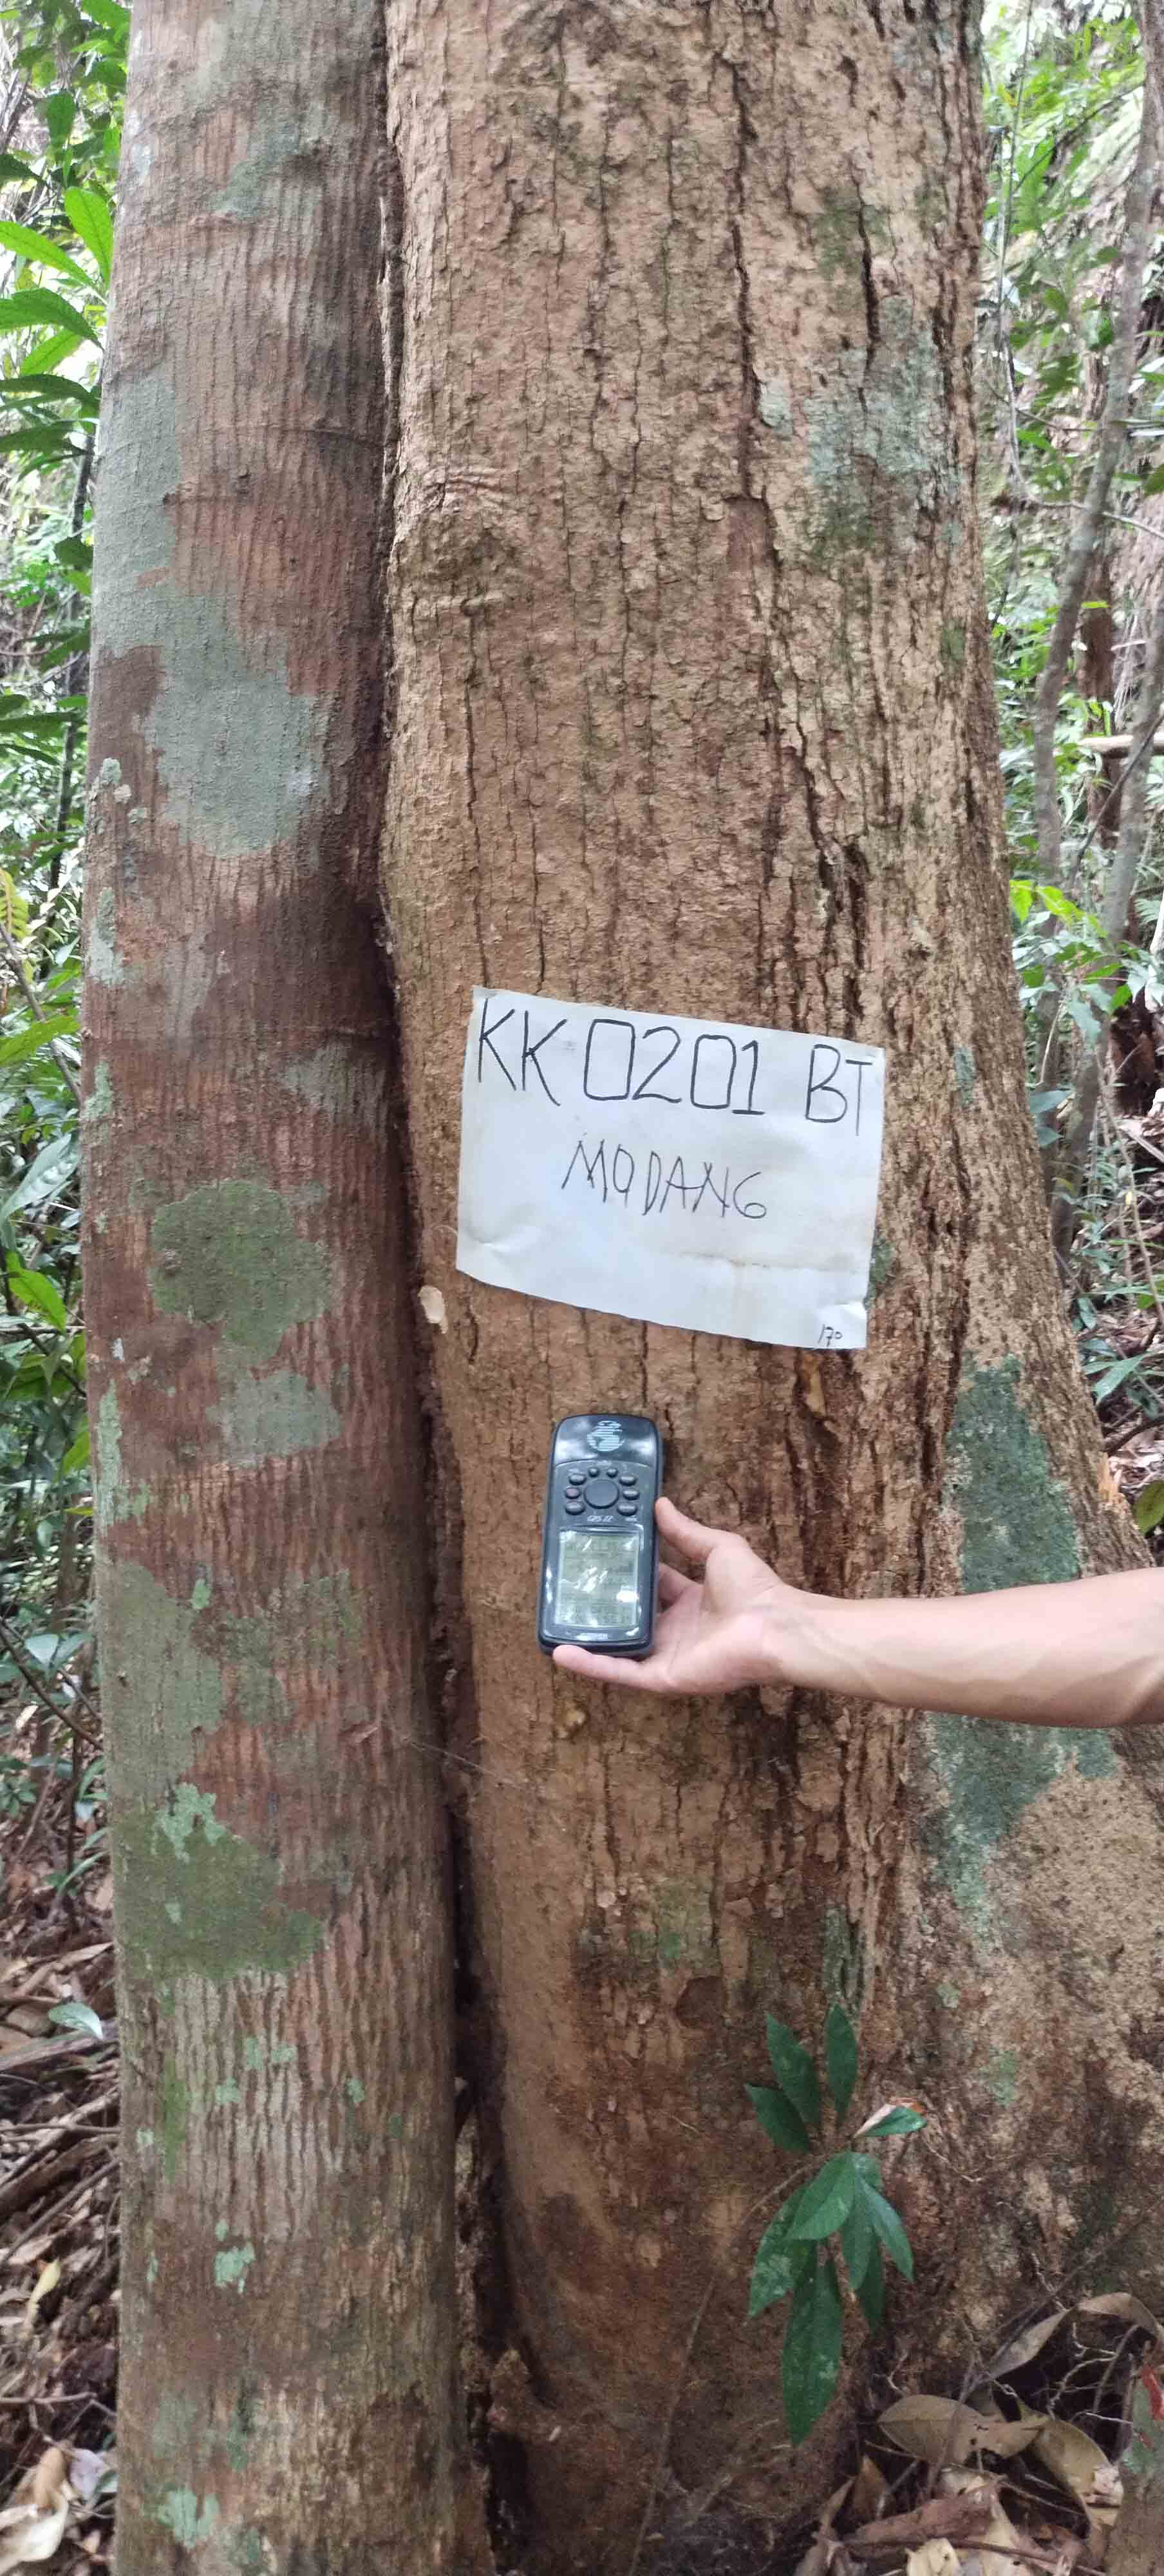 KK 0201 BT
MODANG
170
GPS 72